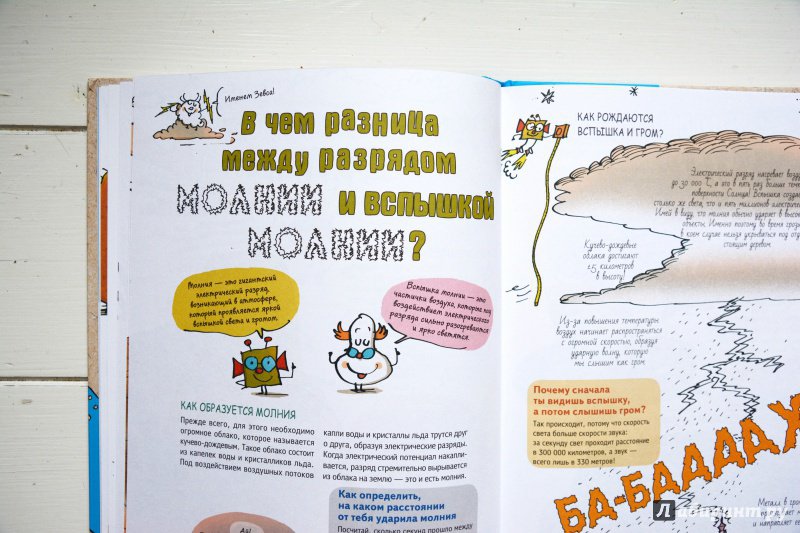 Именем Зевса!
В чем разница
между разрядом
МОЛНИИ и вспышкой
МОЛНИИ?
Молния — это гигантский
электрический разряд,
возникающий в атмосфере,
который проявляется яркой
вспышкой света и громом.
Вспышка молнии — это
частички воздуха, которые под
воздействием электрического
разряда сильно разогреваются
и ярко светятся.
КАК ОБРАЗУЕТСЯ МОЛНИЯ
Прежде всего, для этого необходимо
огромное облако, которое называется
кучево-дождевым. Такое облако состоит
из капелек воды и кристалликов льда.
Под воздействием воздушных потоков
капли воды и кристаллы льда трутся друг
о друга, образуя электрические разряды.
Когда электрический потенциал накапли-
вается, разряд стремительно вырывается
из облака на землю — это и есть молния.
Как определить,
на каком расстоянии
от тебя ударила молния
Посчитай, сколько секунд прошло между
Ай!
КАК РОЖДАЮТСЯ
ВСПЫШКА И ГРОМ?
Электрический разряд нагревает возду
до 30 000 °C, а это в пять раз больше темпе
поверхности Солнца! Вспышка созда
столько же света, что и пять миллионов электриче
Имей в виду, что молния обычно ударяет в высоки
объекты. Именно поэтому во время грозы
в коем случае нельзя укрываться под от
стоящим деревом.
Кучево-дождевые
облака достигают
15 километров
в высоту!
Из-за повышения температуры
воздух начинает распространяться
с огромной скоростью, образуя
ударную волну, которую
мы слышим как гром.
Почему сначала
ты видишь вспышку,
а потом слышишь гром?
Так происходит, потому что скорость
света больше скорости звука:
за секунду свет проходит расстояние
в 300 000 километров, а звук —
всего лишь в 330 метров!
БА-БАДДДДАХ
Металл в гром
и направляет ее
Лабиринт.ру